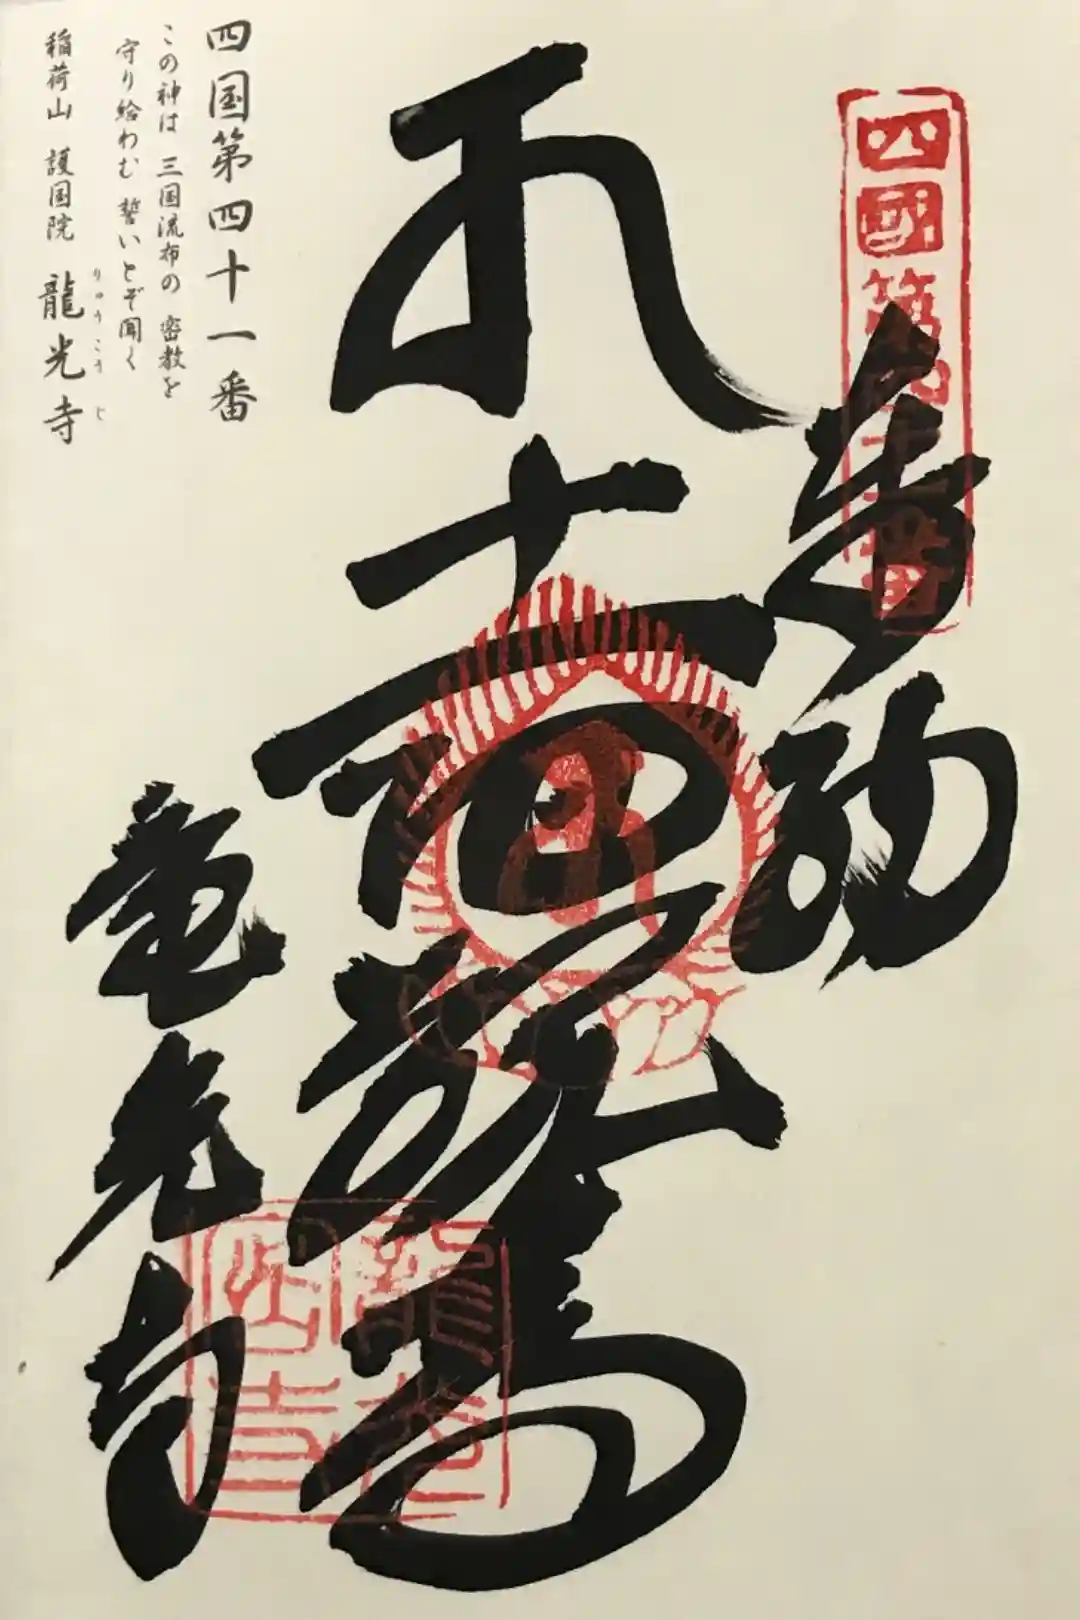 四國第四十一番
奉納
十一面
竜光寺
四国第四十一番
この神は 三国流布の 密教を
守り給わむ 誓いとぞ聞く
りゅうこうじ
稲荷山 護国院 龍光寺